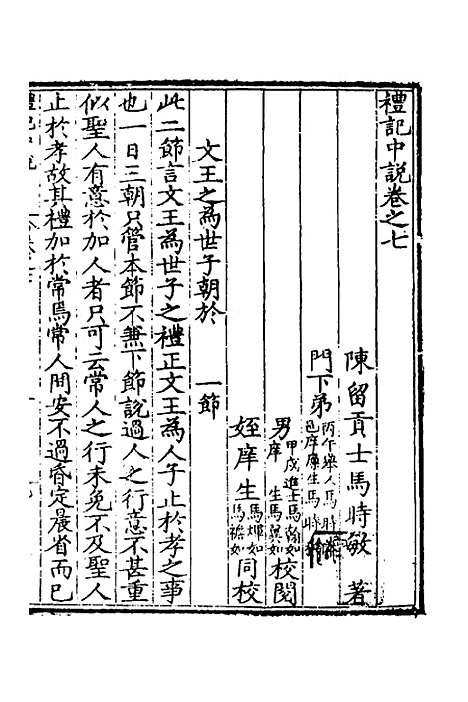 禮記中説卷之七
陳留貢士馬時敏 著
門下弟 丙午舉人馬時 邑庠廩生馬時
男 甲戌進士馬翰如 庠生馬巽如 校閲
姪庠生 馬燁如 馬襜如 同校
文王之為世子朝於 一節
此二節言文王為世子之禮正文王為人子止於孝之事
也一日三朝只管本節不兼下節説過人之行意不甚重
似聖人有意於加人者只可云常人之行未免不及聖人
止於孝故其禮加於常焉常人問安不過昏定晨省而已